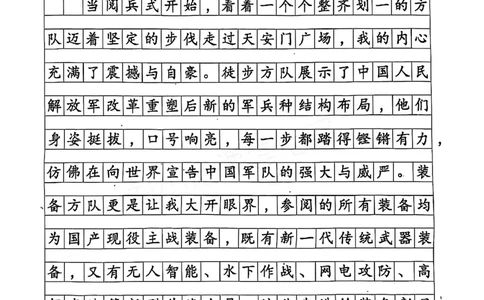 当阅兵式开始，看着一个个整齐划一的方
队迈着坚定的步伐走过天安门广场，我的内心
充满了震撼与自豪。徒步方队展示了中国人民
解放军改革重塑后新的军兵种结构布局，他们
身姿挺拔，口号响亮，每一步都踏得铿锵有力，
仿佛在向世界宣告中国军队的强大与威严。装
备方队更是让我大开眼界，参阅的所有装备均
为国产现役主战装备，既有新一代传统武器装
备，又有无人智能、水下作战、网电攻防、高